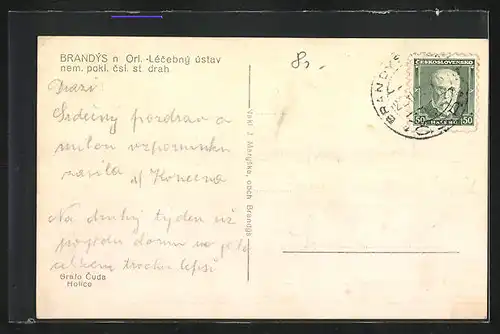 BRANDÝS n Orl.-Léčebný ústav
nem. pokl. čsl. st. drah
Drazí
Srdečný pozdrav a
milou vzpomínku
zasílá Konečná
Na druhý týden už
pojedu domů
trochu lepší
Grafo Čuda
Holice
Nakl. J. Maryška, obch. Brandýs
8.
ČESKOSLOVENSKO
50 50
BRANDÝS